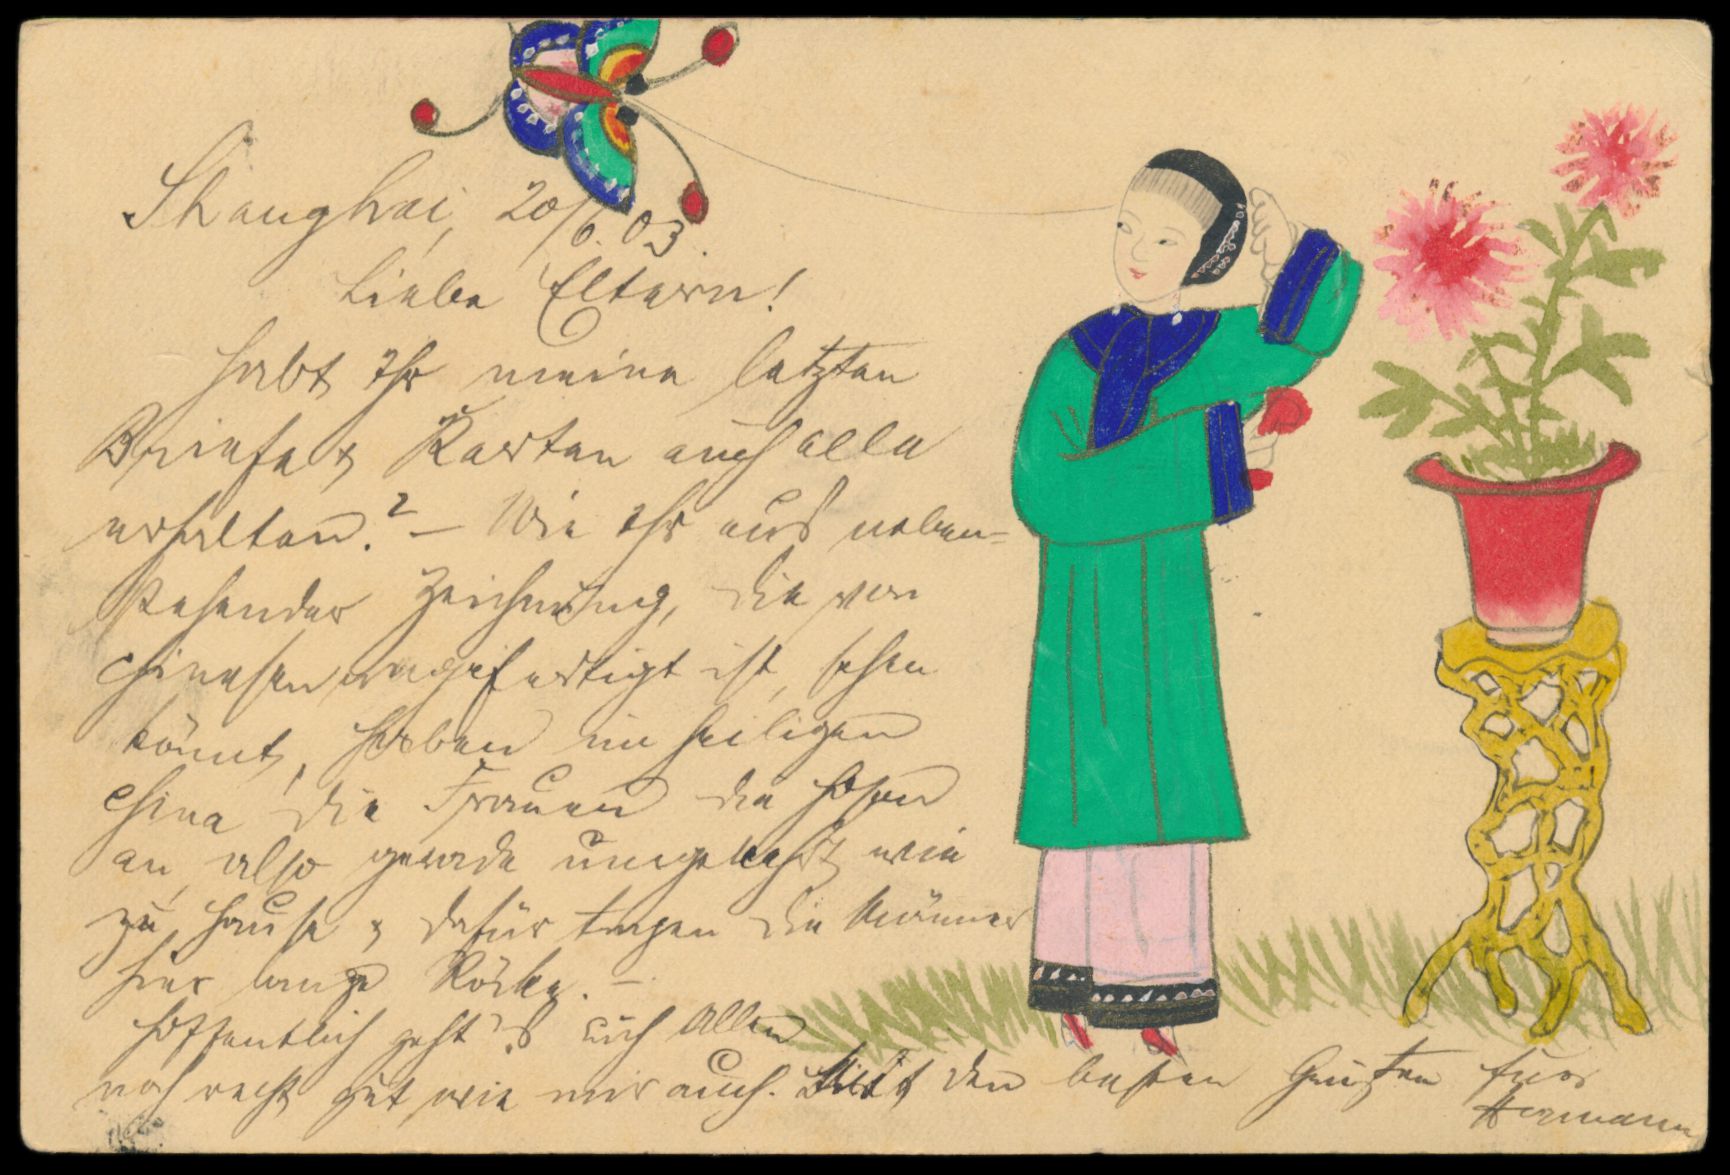 Shanghai, 20/6. 03.
Liebe Eltern!
Habt Ihr meine letzten
Briefe & Karten auch alle
erhalten? – Wie Ihr aus neben=
stehender Zeichnung, die von
Chinesen angefertigt ist, sehen
könnt, haben im heiligen
China die Frauen die Hosen
an, also gerade umgekehrt wie
zu Hause & dafür tragen die Männer
hier lange Röcke. –
Hoffentlich geht's Euch Allen
noch recht gut, wie mir auch. Mit den besten Grüßen Euer
Hermann